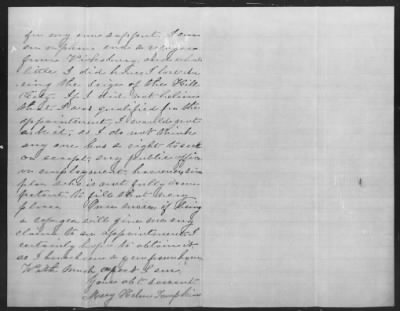 for my own support. I am
an orphan and a refugee
from Vicksburg and what
little I did have I lost du
ring the seige of the Hill
City. If I did not believe
that I was qualified for the
appointment, I would not
ask it, as I do not think
any one has a right to seek
or accept any public office
or employment, however sim
ple who is not fully com
petent to fill that very
place. Once more, if being
a refugee will give me any
claim to an appointment I
certainly hope to obtain it
as I have been a
With much respect I am
Your obt servant
Mary Helen Tompkins